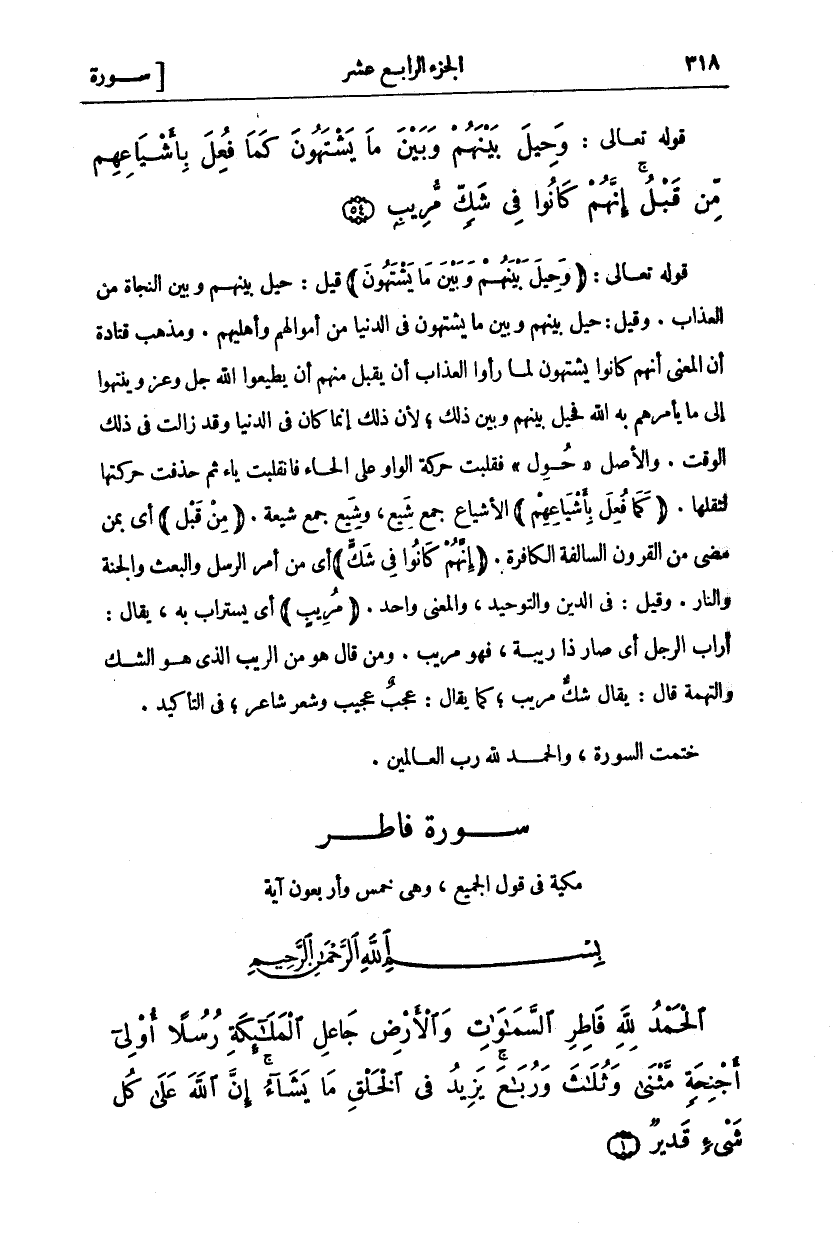 ٣١٨ الجزء الرابع عشر [ سورة
قوله تعالى : وَحِيلَ بَيْنَهُمْ وَبَيْنَ مَا يَشْتَهُونَ كَمَا فُعِلَ بِأَشْيَاعِهِم
مِّن قَبْلُ ۚ إِنَّهُمْ كَانُوا فِى شَكٍّ مُّرِيبٍ ﴿٥٤﴾
قوله تعالى : ﴿ وَحِيلَ بَيْنَهُمْ وَبَيْنَ مَا يَشْتَهُونَ ﴾ قيل : حيل بينهم وبين النجاة من
العذاب . وقيل : حيل بينهم وبين ما يشتهون فى الدنيا من أموالهم وأهليهم . ومذهب قتادة
أن المعنى أنهم كانوا يشتهون لما رأوا العذاب أن يقبل منهم أن يطيعوا الله جل وعز وينتهوا
إلى ما يأمرهم به الله فحيل بينهم وبين ذلك ؛ لأن ذلك إنما كان فى الدنيا وقد زالت فى ذلك
الوقت . والأصل « حُوِل » فقلبت حركة الواو على الحاء فانقلبت ياء ثم حذفت حركتها
لثقلها . ﴿ كَمَا فُعِلَ بِأَشْيَاعِهِمْ ﴾ الأشياع جمع شِيَع ، وشِيَع جمع شيعة . ﴿ مِنْ قَبْل ﴾ أى بمن
مضى من القرون السالفة الكافرة . ﴿ إِنَّهُمْ كَانُوا فِى شَكٍّ ﴾ أى من أمر الرسل والبعث والجنة
والنار . وقيل : فى الدين والتوحيد ، والمعنى واحد . ﴿ مُرِيبٍ ﴾ أى يستراب به ، يقال :
أراب الرجل أى صار ذا ريبة ، فهو مريب . ومن قال هو من الريب الذى هو الشك
والتهمة قال : يقال شكٌّ مريب ؛ كما يقال : عجبٌ عجيب وشعر شاعر ؛ فى التأكيد .
ختمت السورة ، والحمد لله رب العالمين .
سورة فاطر
مكية فى قول الجميع ، وهى خمس وأربعون آية
بِسْمِ اللَّهِ الرَّحْمَٰنِ الرَّحِيمِ
ٱلْحَمْدُ لِلَّهِ فَاطِرِ ٱلسَّمَٰوَٰتِ وَٱلْأَرْضِ جَاعِلِ ٱلْمَلَٰٓئِكَةِ رُسُلًا أُوْلِىٓ
أَجْنِحَةٍ مَّثْنَىٰ وَثُلَٰثَ وَرُبَٰعَ ۚ يَزِيدُ فِى ٱلْخَلْقِ مَا يَشَآءُ ۚ إِنَّ ٱللَّهَ عَلَىٰ كُلِّ
شَىْءٍ قَدِيرٌ ﴿١﴾